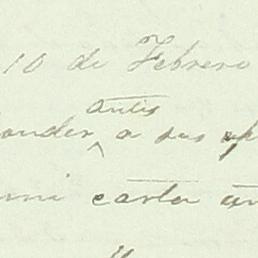 10 de Febrero
antes
onder a sus ap
mi carta an